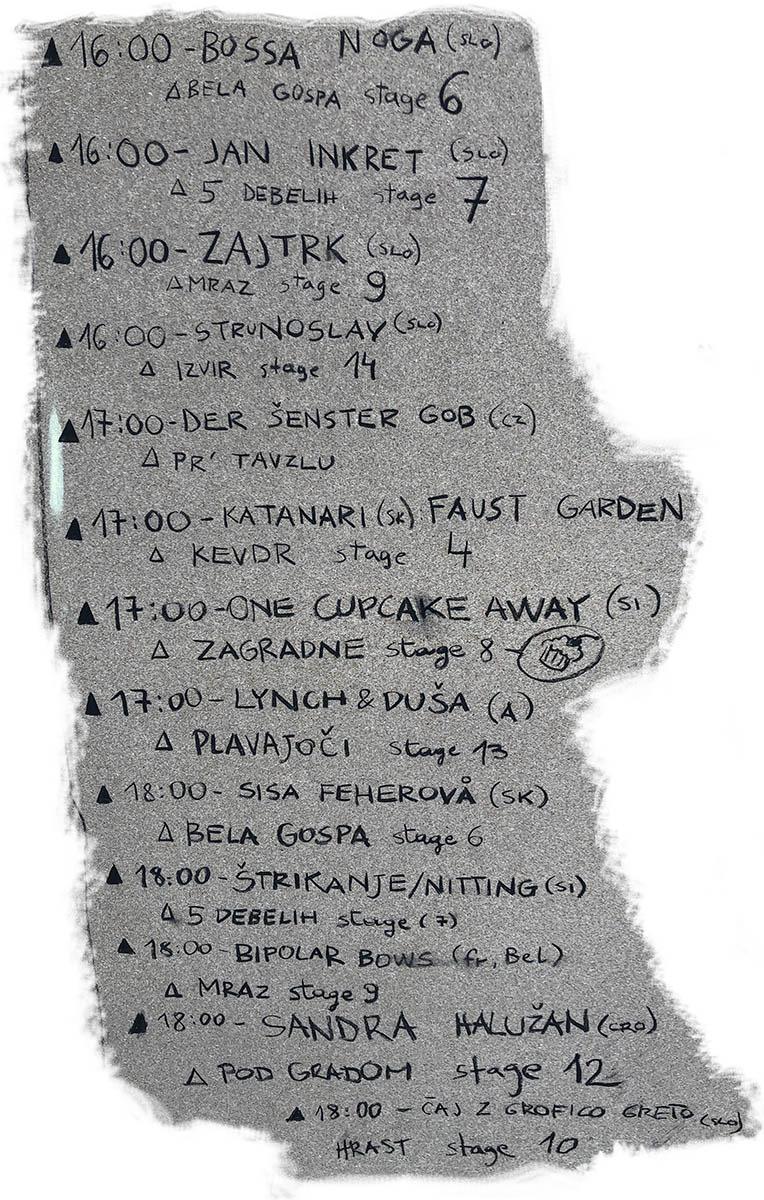 ▲ 16:00 - BOSSA NOGA (SLO)
Δ BELA GOSPA stage 6
▲ 16:00 - JAN INKRET (SLO)
Δ 5 DEBELIH stage 7
▲ 16:00 - ZAJTRK (SLO)
Δ MRAZ stage 9
▲ 16:00 - STRUNOSLAV (SLO)
Δ IZVIR stage 14
▲ 17:00 - DER ŠENSTER GOB (CZ)
Δ PR' TAVZLU
▲ 17:00 - KATANARI (SK) FAUST GARDEN
Δ KEVDR stage 4
▲ 17:00 - ONE CUPCAKE AWAY (SI)
Δ ZAGRADNE stage 8 -
▲ 17:00 - LYNCH & DUŠA (A)
Δ PLAVAJOČI stage 13
▲ 18:00 - SISA FEHEROVÅ (SK)
Δ BELA GOSPA stage 6
▲ 18:00 - ŠTRIKANJE/NITTING (SI)
Δ 5 DEBELIH stage (7)
▲ 18:00 - BIPOLAR BOWS (fr, Bel)
Δ MRAZ stage 9
▲ 18:00 - SANDRA HALUŽAN (CRO)
Δ POD GRADOM stage 12
▲ 18:00 - ČAJ Z GROFICO GRETO (SLO)
HRAST stage 10